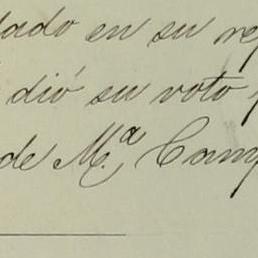 dado en su rep
dió su voto
de M.ª Camp